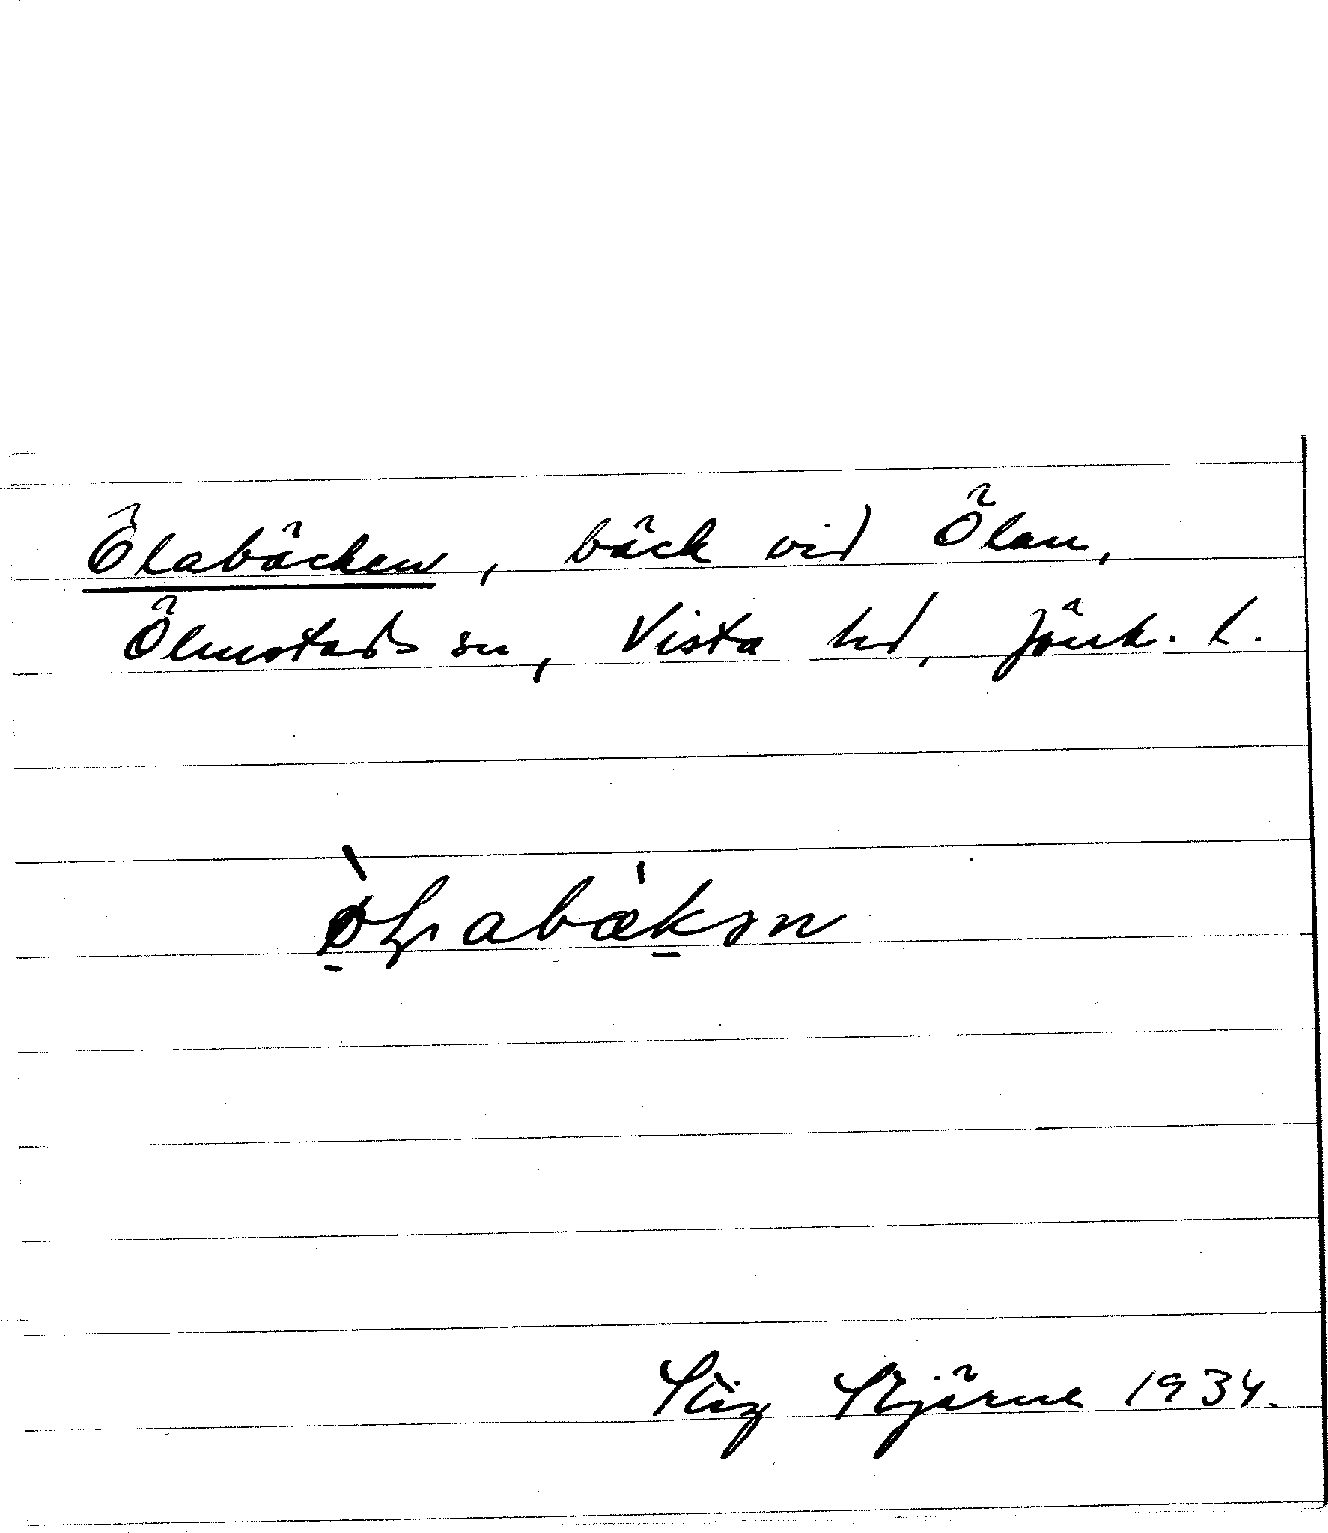 Ölabäcken, bäck vid Ölan,
Ölmstads sn, Vista hd, Jönk. l.
ø̀ɫabæ̀kən
Stig Stjärne 1934.